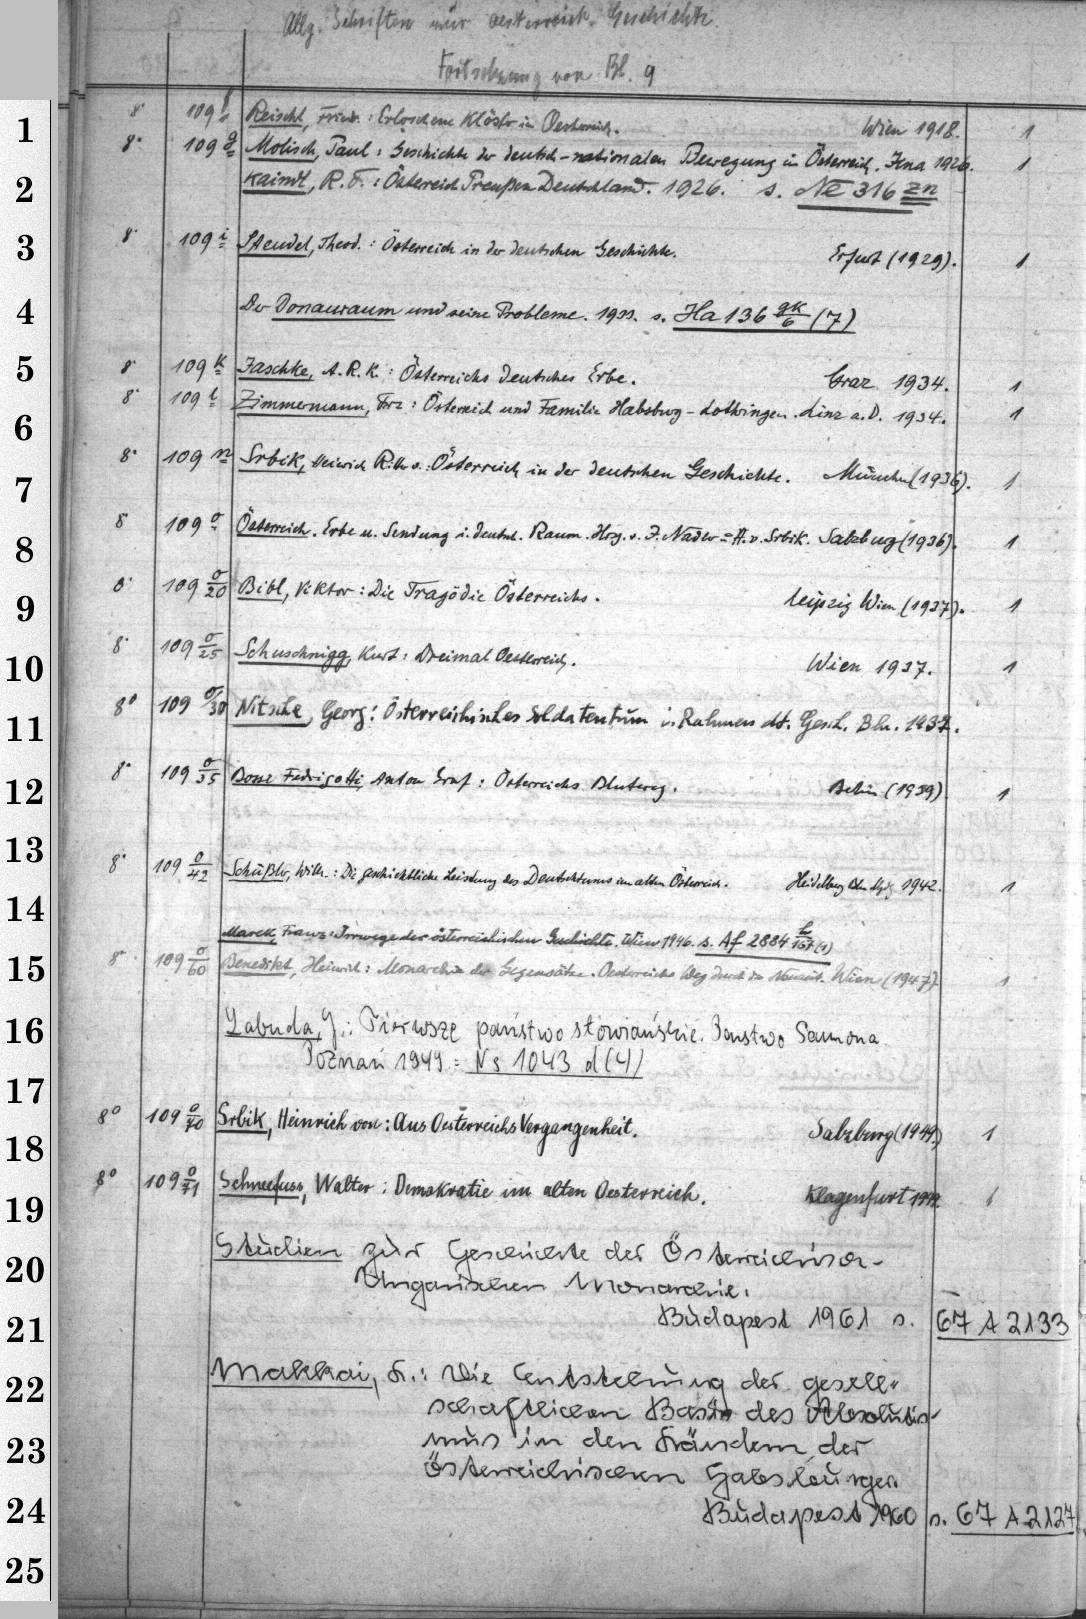 Allg. Schriften zur oesterreich. Geschichte.
Fortsetzung von Bl. 9
1
8° 109 f Reischl, Friedr.: Erloschene Klöster in Oesterreich. Wien 1918. 1
8° 109 g Molisch, Paul: Geschichte der deutsch-nationalen Bewegung in Österreich. Jena 1926. 1
2
Kaindl, R. F.: Österreich Preußen Deutschland. 1926. s. Ne 316 zn
3
8° 109 i Steudel, Theod.: Österreich in der deutschen Geschichte. Erfurt (1929). 1
4
Der Donauraum und seine Probleme. 1933. s. Ha 136 gk/6 (7)
5
8° 109 k Jaschke, A. R. K.: Österreichs deutsches Erbe. Graz 1934. 1
8° 109 l Zimmermann, Frz: Österreich und Familie Habsburg-Lothringen. Linz a.D. 1934. 1
6
8° 109 n Srbik, Heinrich Ritter v.: Österreich in der deutschen Geschichte. München (1936). 1
7
8° 109 o Österreich. Erbe u. Sendung i. deutsch. Raum. Hrsg. v. J. Nadler = H. v. Srbik. Salzburg (1936). 1
8
8° 109 o/20 Bibl, Viktor: Die Tragödie Österreichs. Leipzig Wien (1937). 1
9
8° 109 o/25 Schuschnigg, Kurt: Dreimal Oesterreich. Wien 1937. 1
10
8° 109 o/30 Nitsche, Georg: Österreichisches Soldatentum i. Rahmen dt. Gesch. Bln. 1937.
11
8° 109 o/35 Bossi Fedrigotti, Anton Graf: Österreichs Blutweg. Berlin (1939) 1
12
13
8° 109 o/42 Schüßler, Wilh.: Die geschichtliche Leistung des Deutschtums im alten Österreich. Heidelberg 1942. 1
14
Marek, Franz: Irrwege der österreichischen Geschichte. Wien 1946. s. Af 2884
8° 109 o/60 Benedikt, Heinrich: Monarchie der Gegensätze. Oesterreichs Weg durch die Neuzeit. Wien (1947) 1
15
16
Labuda, G.: Pierwsze państwo słowiańskie. Państwo Samona
Poznań 1949 = Ns 1043 d(4)
17
8° 109 o/70 Srbik, Heinrich von: Aus Oesterreichs Vergangenheit. Salzburg (1949) 1
18
8° 109 o/71 Schneefuss, Walter: Demokratie im alten Oesterreich. Klagenfurt 1949. 1
19
Studien zur Geschichte der Österreichisch-
20
Ungarischen Monarchie.
Budapest 1961 s. 67 A 2133
21
22
Makkai, L.: Die Entstehung der gesell-
schaftlichen Basis des Absolutis-
23
mus in den Ländern der
österreichischen Habsburger.
24
Budapest 1960 s. 67 A 2127
25